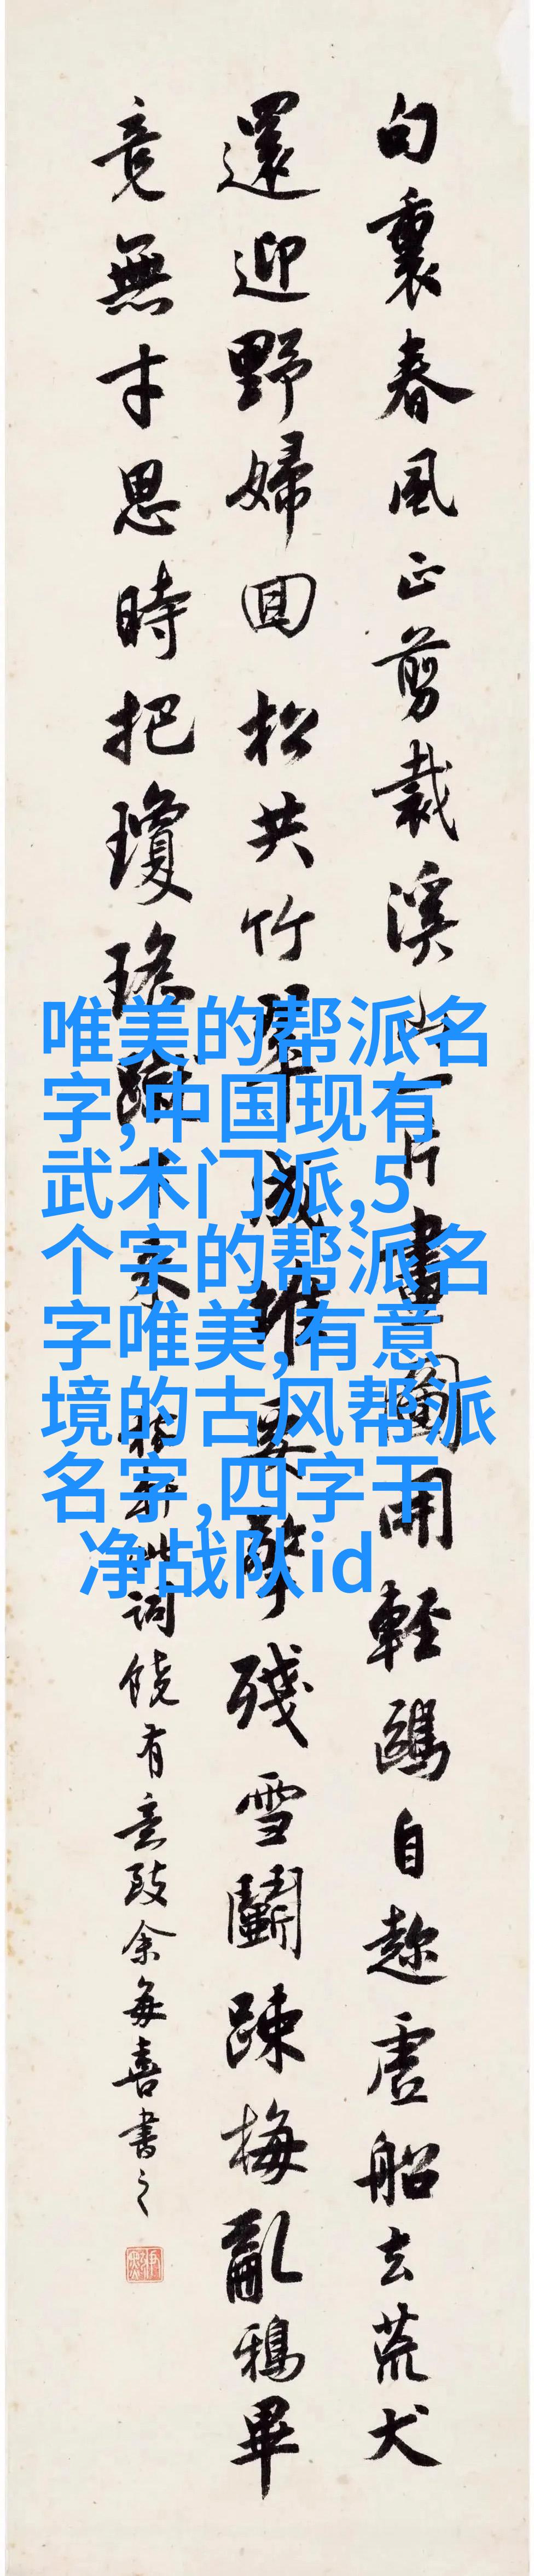 句裏春風正剪裁溪山一片畫圖開輕鷗自趁虛船去荒犬
還迎野婦回松共竹翠成堆要擎殘雪鬬踈梅亂鴉畢
竟無才思時把瓊瑤蹴下來 稼軒此詞饒有意致余每喜書之
唯美的帮派名
字,中国现有
武术门派,5
个字的帮派名
字唯美,有意
境的古风帮派
名字,四字干
净战队id